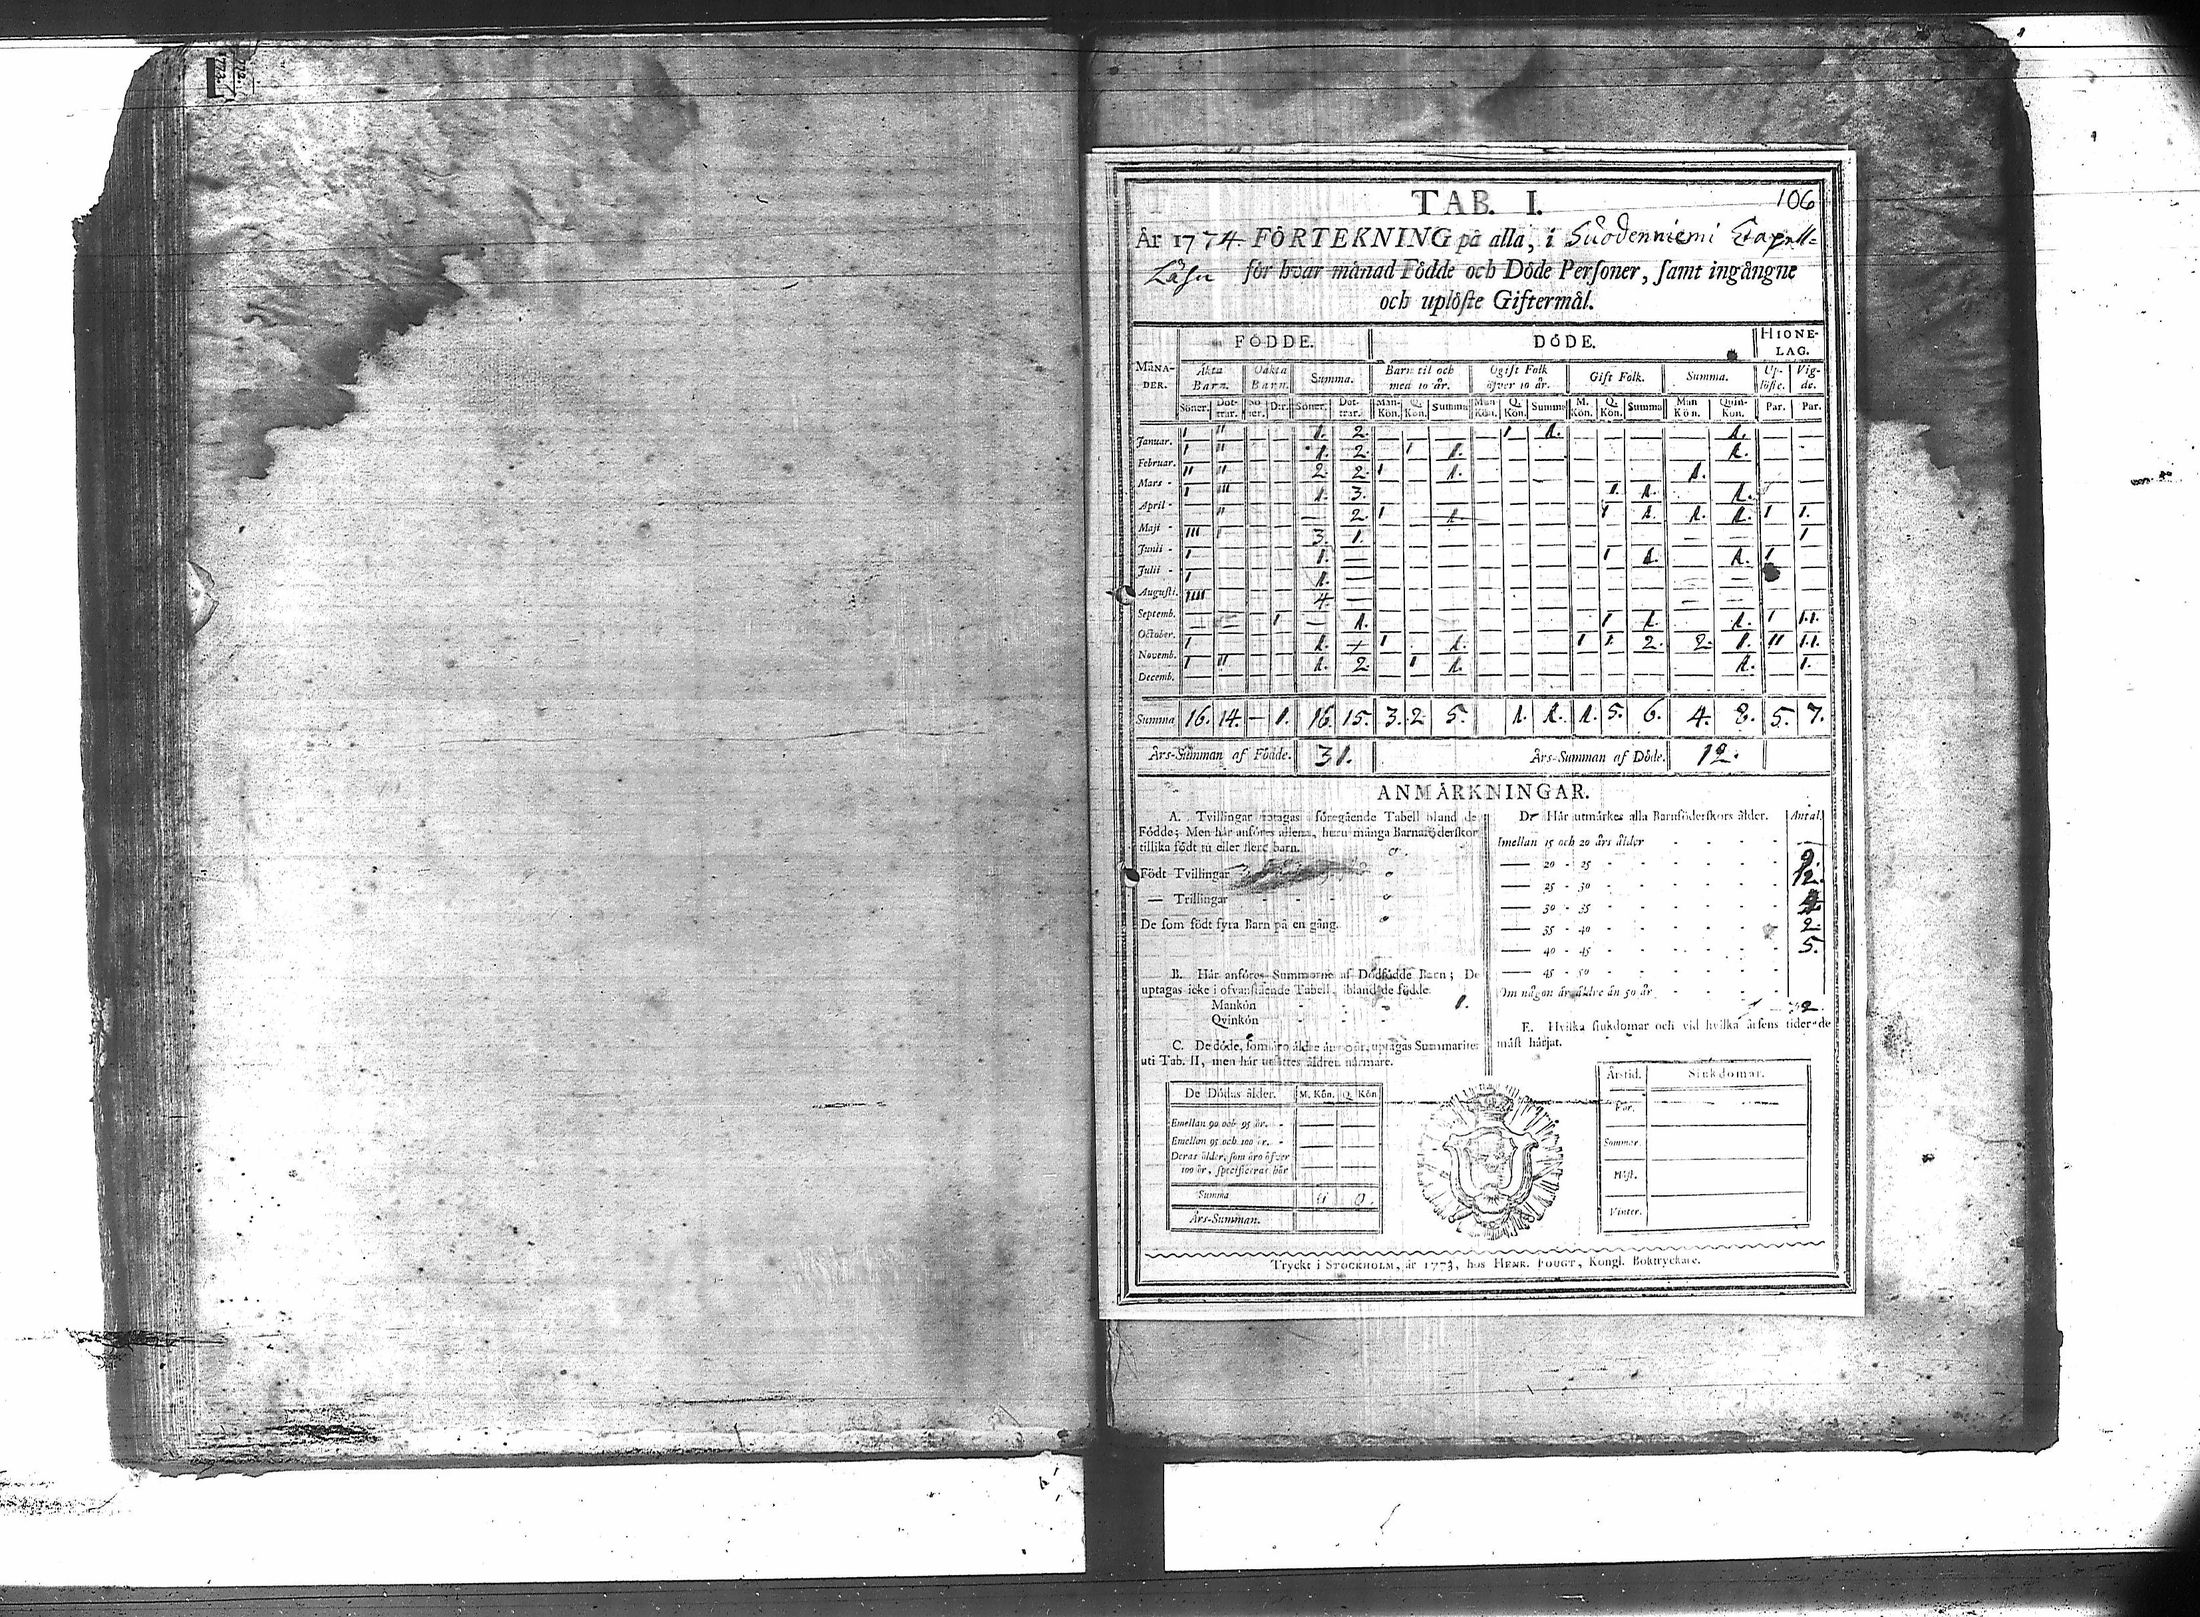 TAB. I.
106
År 1774 FÖRTEKNING på alla, i Suodenniemi Capell=
Låhn för hvar månad Födde och Döde Personer, samt ingångne
och uplöste Giftermål.
MÅNADER. FÖDDE. DÖDE. HIONELAG.
Äkta Barn. Oäkta Barn. Summa. Barn til och med 10 år. Ogift Folk öfver 10 år. Gift Folk. Summa. Uplöste. Vigde.
Söner. Dottrar. Söner. D:r. Söner. Dottrar. Man-Kön. Q. Kön. Summa Man Kön. Q. Kön. Summa M. Kön. Q. Kön. Summa Man Kön. Quin-Kon. Par. Par.
Januar. I II — — 1. 2. — — — — I 1. — — — — 1. — —
Februar. I II — — 1. 2. — I 1. — — — — — — — 1. — —
Mars - II II — — 2. 2. I — 1. — — — — — — 1. — — —
April - I III — — 1. 3. — — — — — — — 1. 1. — 1. — —
Maji - — II — — — 2. I — 1. — — — — I 1. 1. 1. I 1.
Junii - III I — — 3. 1. — — — — — — — — — — — — I
Julii - I — — — 1. — — — — — — — — I 1. — 1. I —
Augusti. I — — — 1. — — — — — — — — — — — — —
Septemb. IIII — — — 4. — — — — — — — — — — — — — —
October. — — I — — 1. — — — — — — — I 1. — 1. I 1.1.
Novemb. I — — — 1. — I — 1. — — — I I 2. 2. 1. II 1.1.
Decemb. I II — — 1. 2 — I 1. — — — — — — — 1. — 1.
Summa 16. 14. — 1. 16. 15. 3. 2 5. 1. 1. 1. 5. 6. 4. 8. 5. 7.
Års-Summan af Födde. 31. Års-Summan af Döde. 12.
ANMÄRKNINGAR.
A. Tvillingar uptagas i föregående Tabell bland de
Födde; Men här anföres allena, huru många Barnaföderskor
tillika födt tu eller flere barn.
Födt Tvillingar
— Trillingar - - - 0
De som födt fyra Barn på en gång. 0
B. Här anföres Summorne af Dödfödde Barn; De
uptagas icke i ofvanstående Tabell, ibland de födde.
Mankön - - 1.
Qvinkön - -
C. De döde, som äro äldre än 90 år, uptagas Summariter
uti Tab. II, men här utsättes åldren närmare.
De Dödas ålder. M. Kön. Q. Kön
Emellan 90 och 95 år. -
Emellan 95 och 100 år. -
Deras ålder, som äro öfver
100 år, specificeras här
Summa 0 0.
Års-Summan.
D. Här utmärkes alla Barnföderskors ålder. Antal.
Imellan 15 och 20 års ålder - - - - —
— 20 - 25 - - - - - 9.
— 25 - 30 - - - - - 12.
— 30 - 35 - - - - -
— 35 - 40 - - - - - 2.
— 40 - 45 - - - - - 5.
— 45 - 50 - - - - -
Om någon är äldre än 50 år - - -
E. Hvilka siukdomar och vid hvilka årsens tider de
mäst härjat.
Årstid. Siukdomar.
Vår.
Sommar.
Höst.
Vinter.
Tryckt i STOCKHOLM, år 1773, hos HENR. FOUGT, Kongl. Boktryckare.